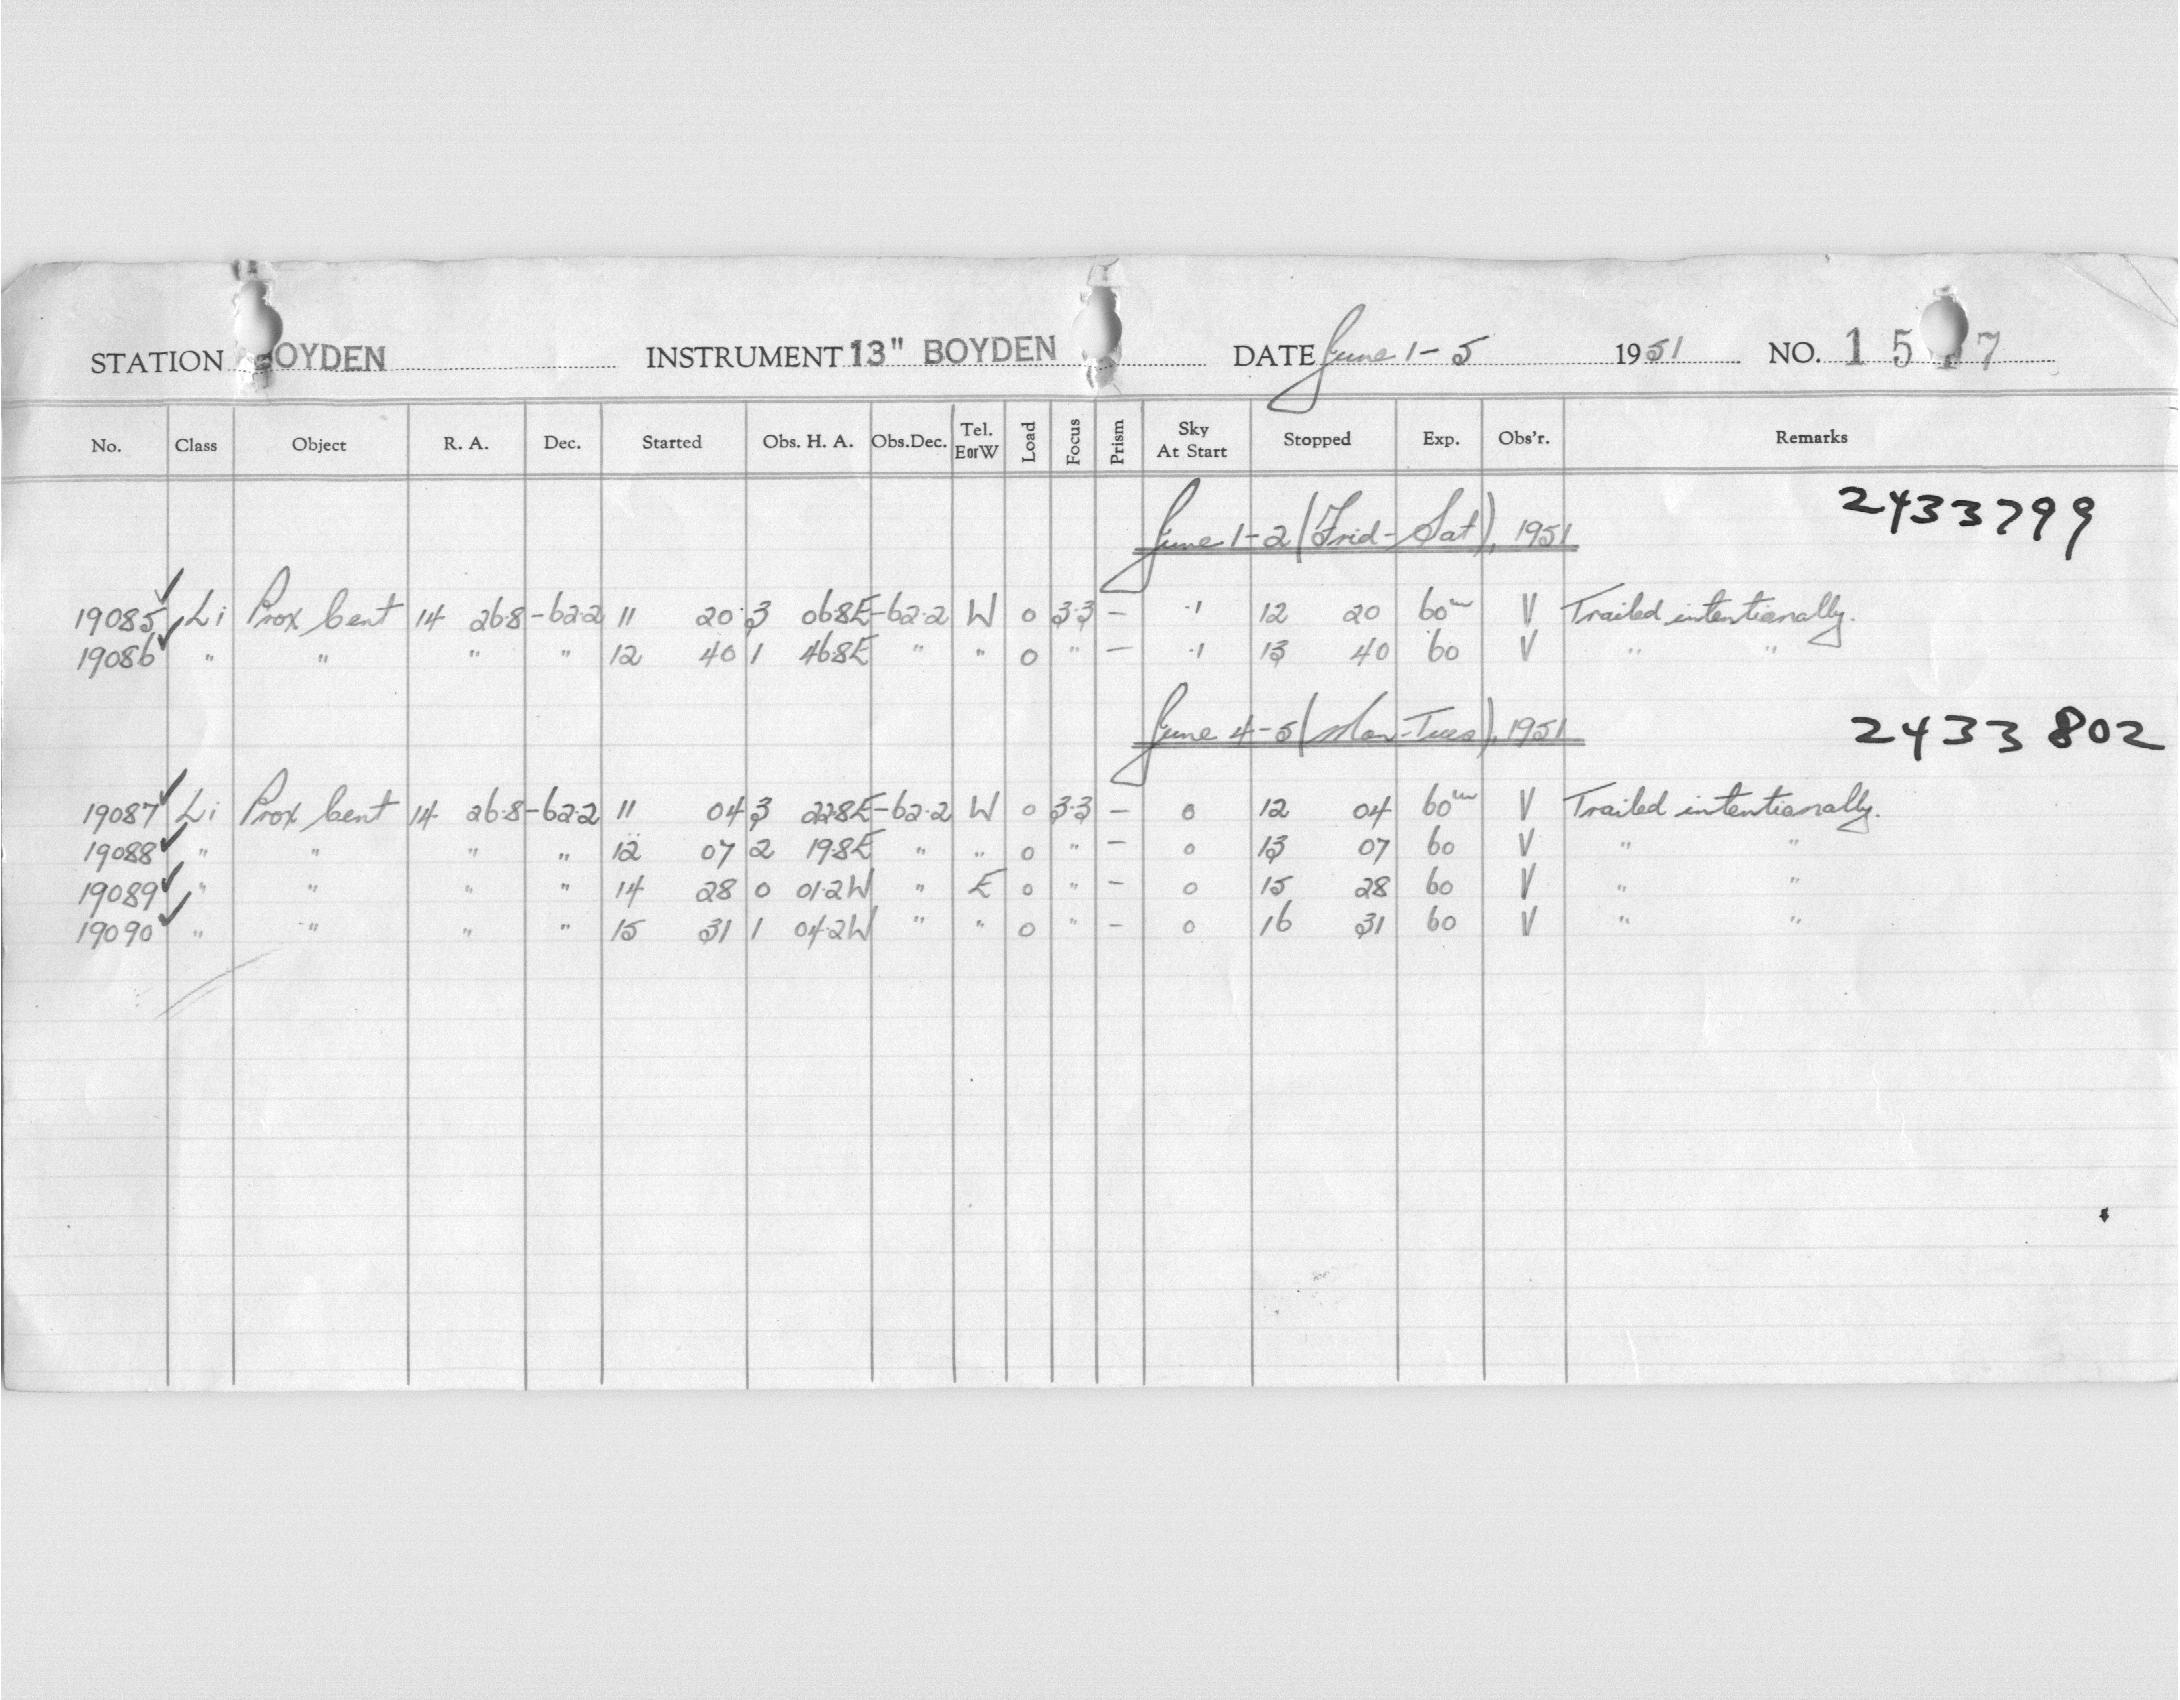 STATION BOYDEN INSTRUMENT 13" BOYDEN DATE June 1-5 1951 NO. 15 7
No. Class Object R. A. Dec. Started Obs. H. A. Obs.Dec. Tel. EorW Load Focus Prism Sky At Start Stopped Exp. Obs'r. Remarks
June 1-2 (Frid-Sat), 1951 2433799
19085 ✓ Li Prox Cent 14 26.8 -62.2 11 20 3 06.8E -62.2 W 0 3.3 — .1 12 20 60m V Trailed intentionally.
19086 ✓ " " " " 12 40 1 46.8E " " 0 " — .1 13 40 60 V " "
June 4-5 (Mon-Tues), 1951 2433 802
19087 ✓ Li Prox Cent 14 26.8 -62.2 11 04 3 22.8E -62.2 W 0 3.3 — 0 12 04 60m V Trailed intentionally.
19088 ✓ " " " " 12 07 2 19.8E " " 0 " — 0 13 07 60 V " "
19089 ✓ " " " " 14 28 0 01.2W " E 0 " — 0 15 28 60 V " "
19090 ✓ " " " " 15 31 1 04.2W " " 0 " — 0 16 31 60 V " "